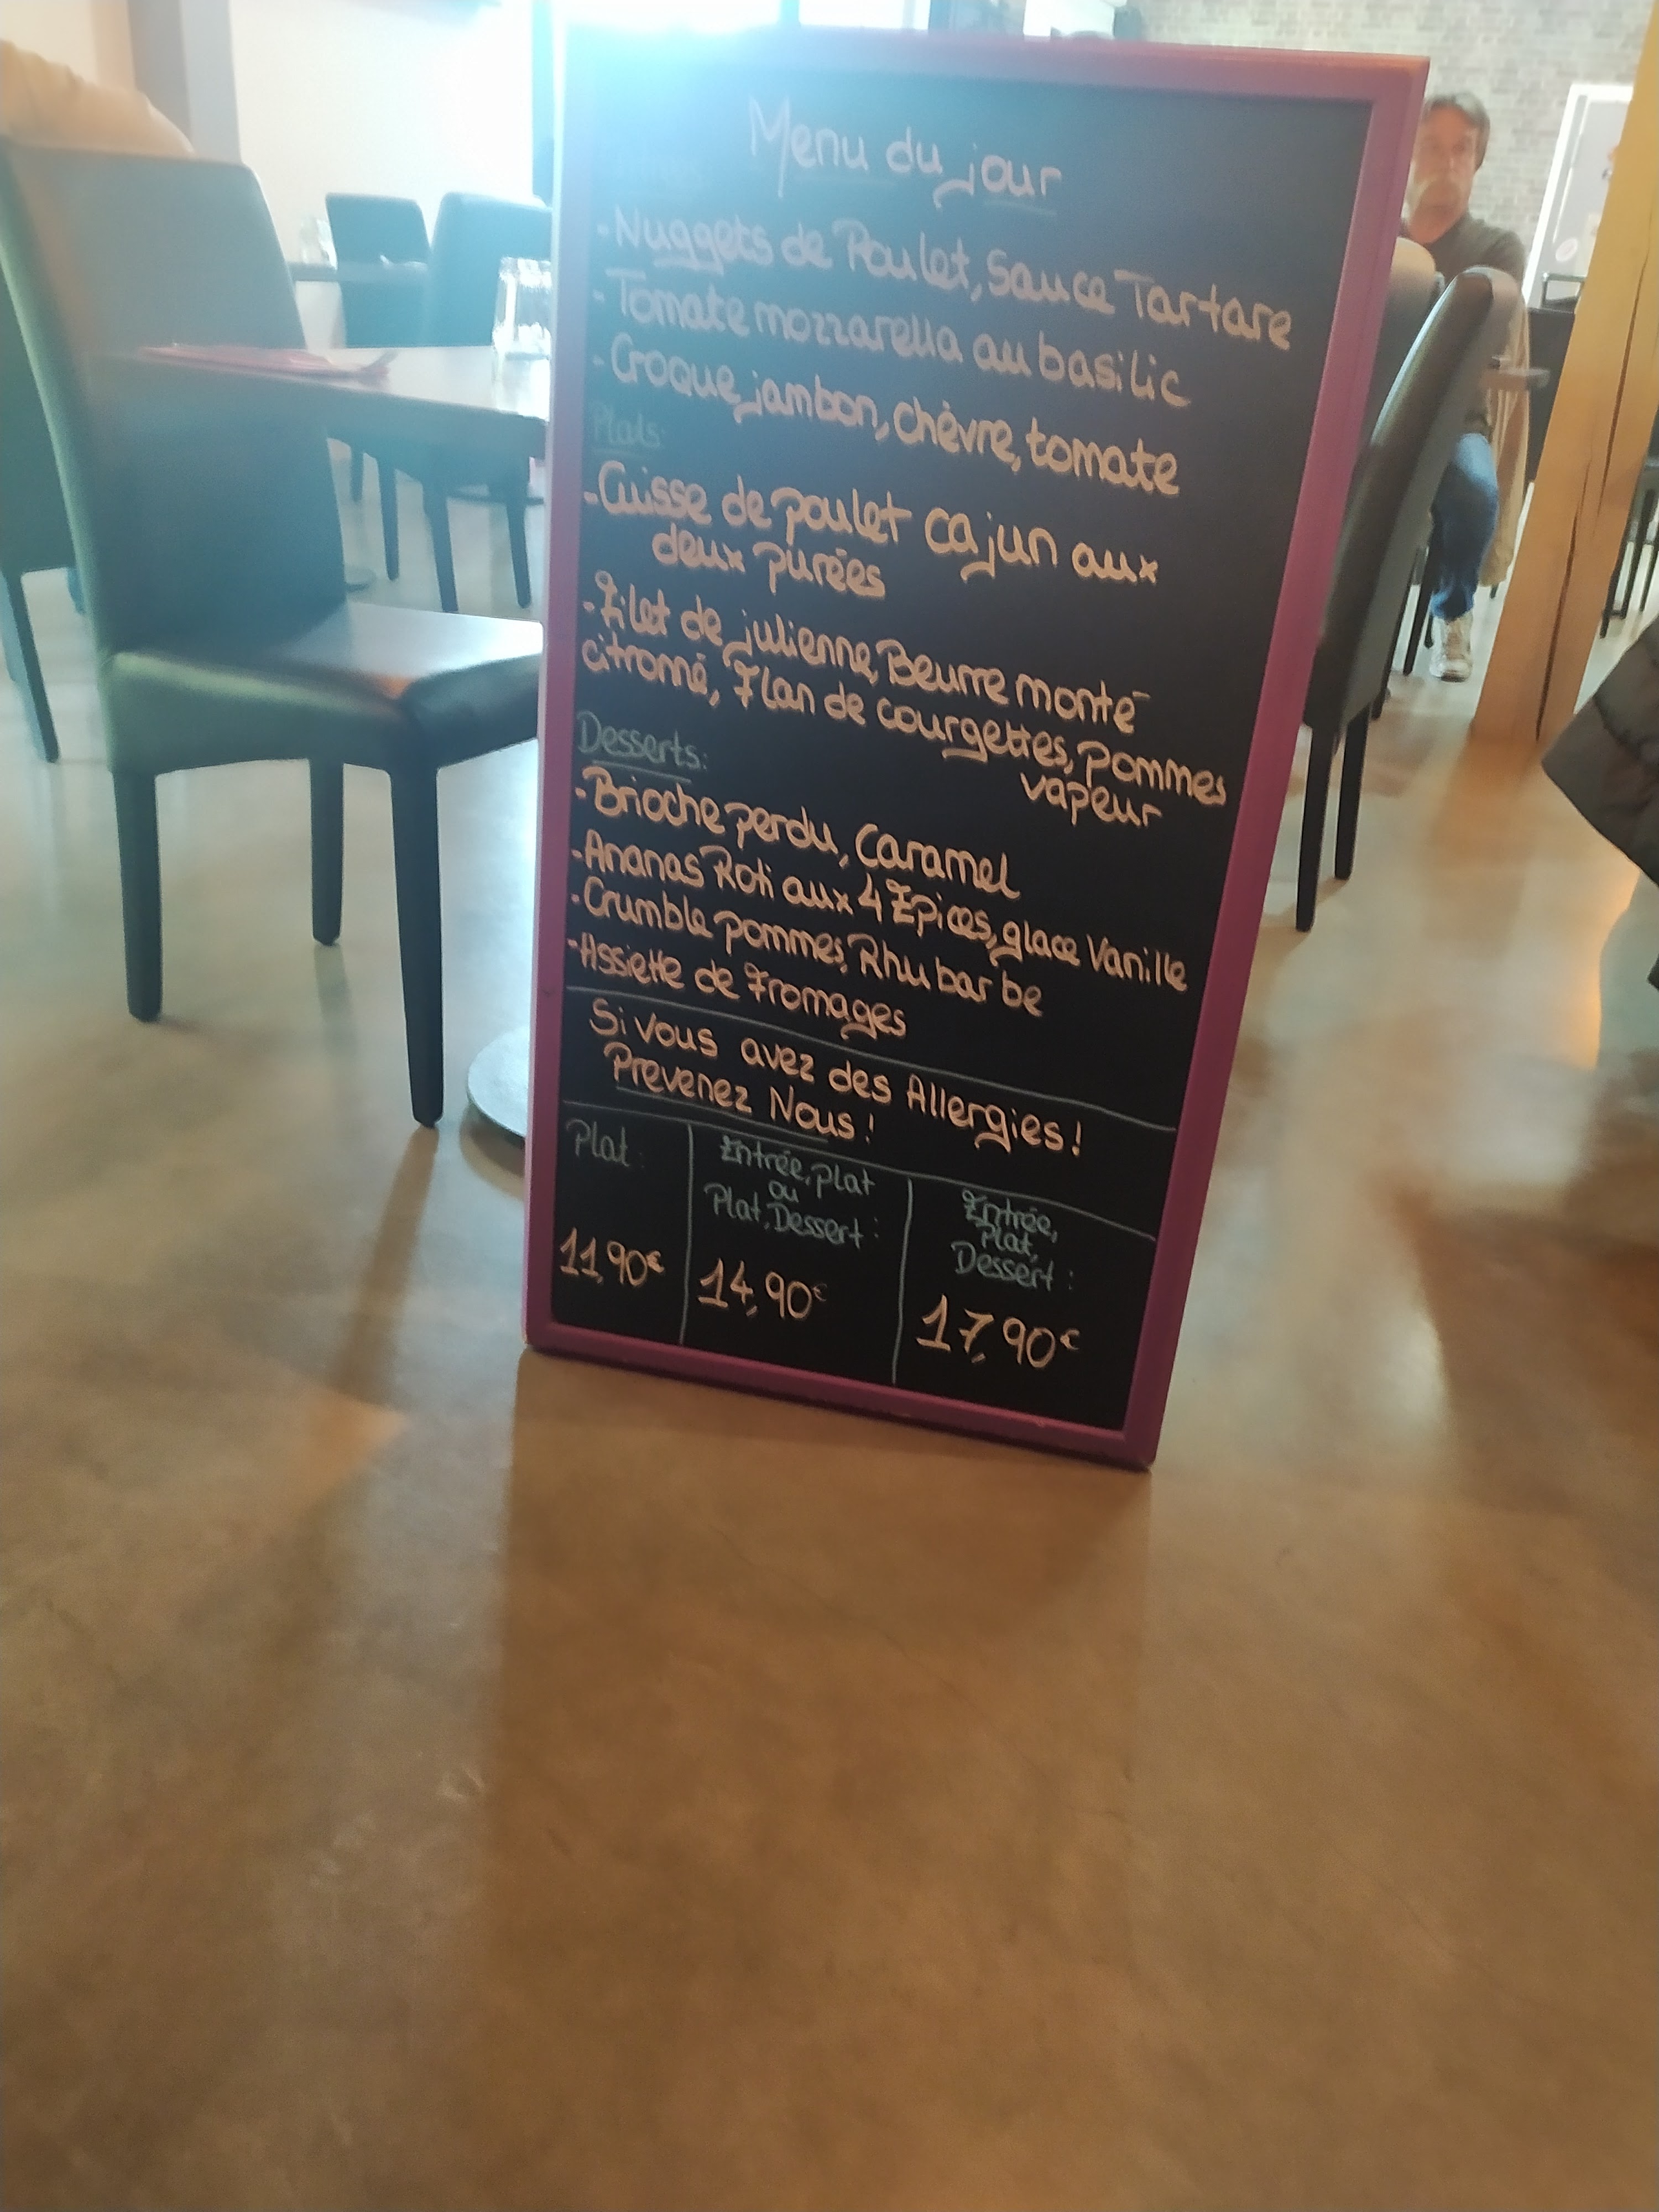 Menu du jour
- Nuggets de Poulet, Sauce Tartare
- Tomate mozzarella au basilic
- Croque jambon, chèvre, tomate
Plats:
- Cuisse de poulet cajun aux
deux purées
- Filet de julienne, Beurre monté
citronné, Flan de courgettes, pommes
vapeur
Desserts:
- Brioche perdu, Caramel
- Ananas Roti aux 4 Epices, glace Vanille
- Crumble pommes, Rhubarbe
- Assiette de Fromages
Si vous avez des Allergies!
Prevenez Nous!
Plat:
11,90€
Entrée, plat
ou
Plat, Dessert:
14,90€
Entrée,
Plat,
Dessert:
17,90€